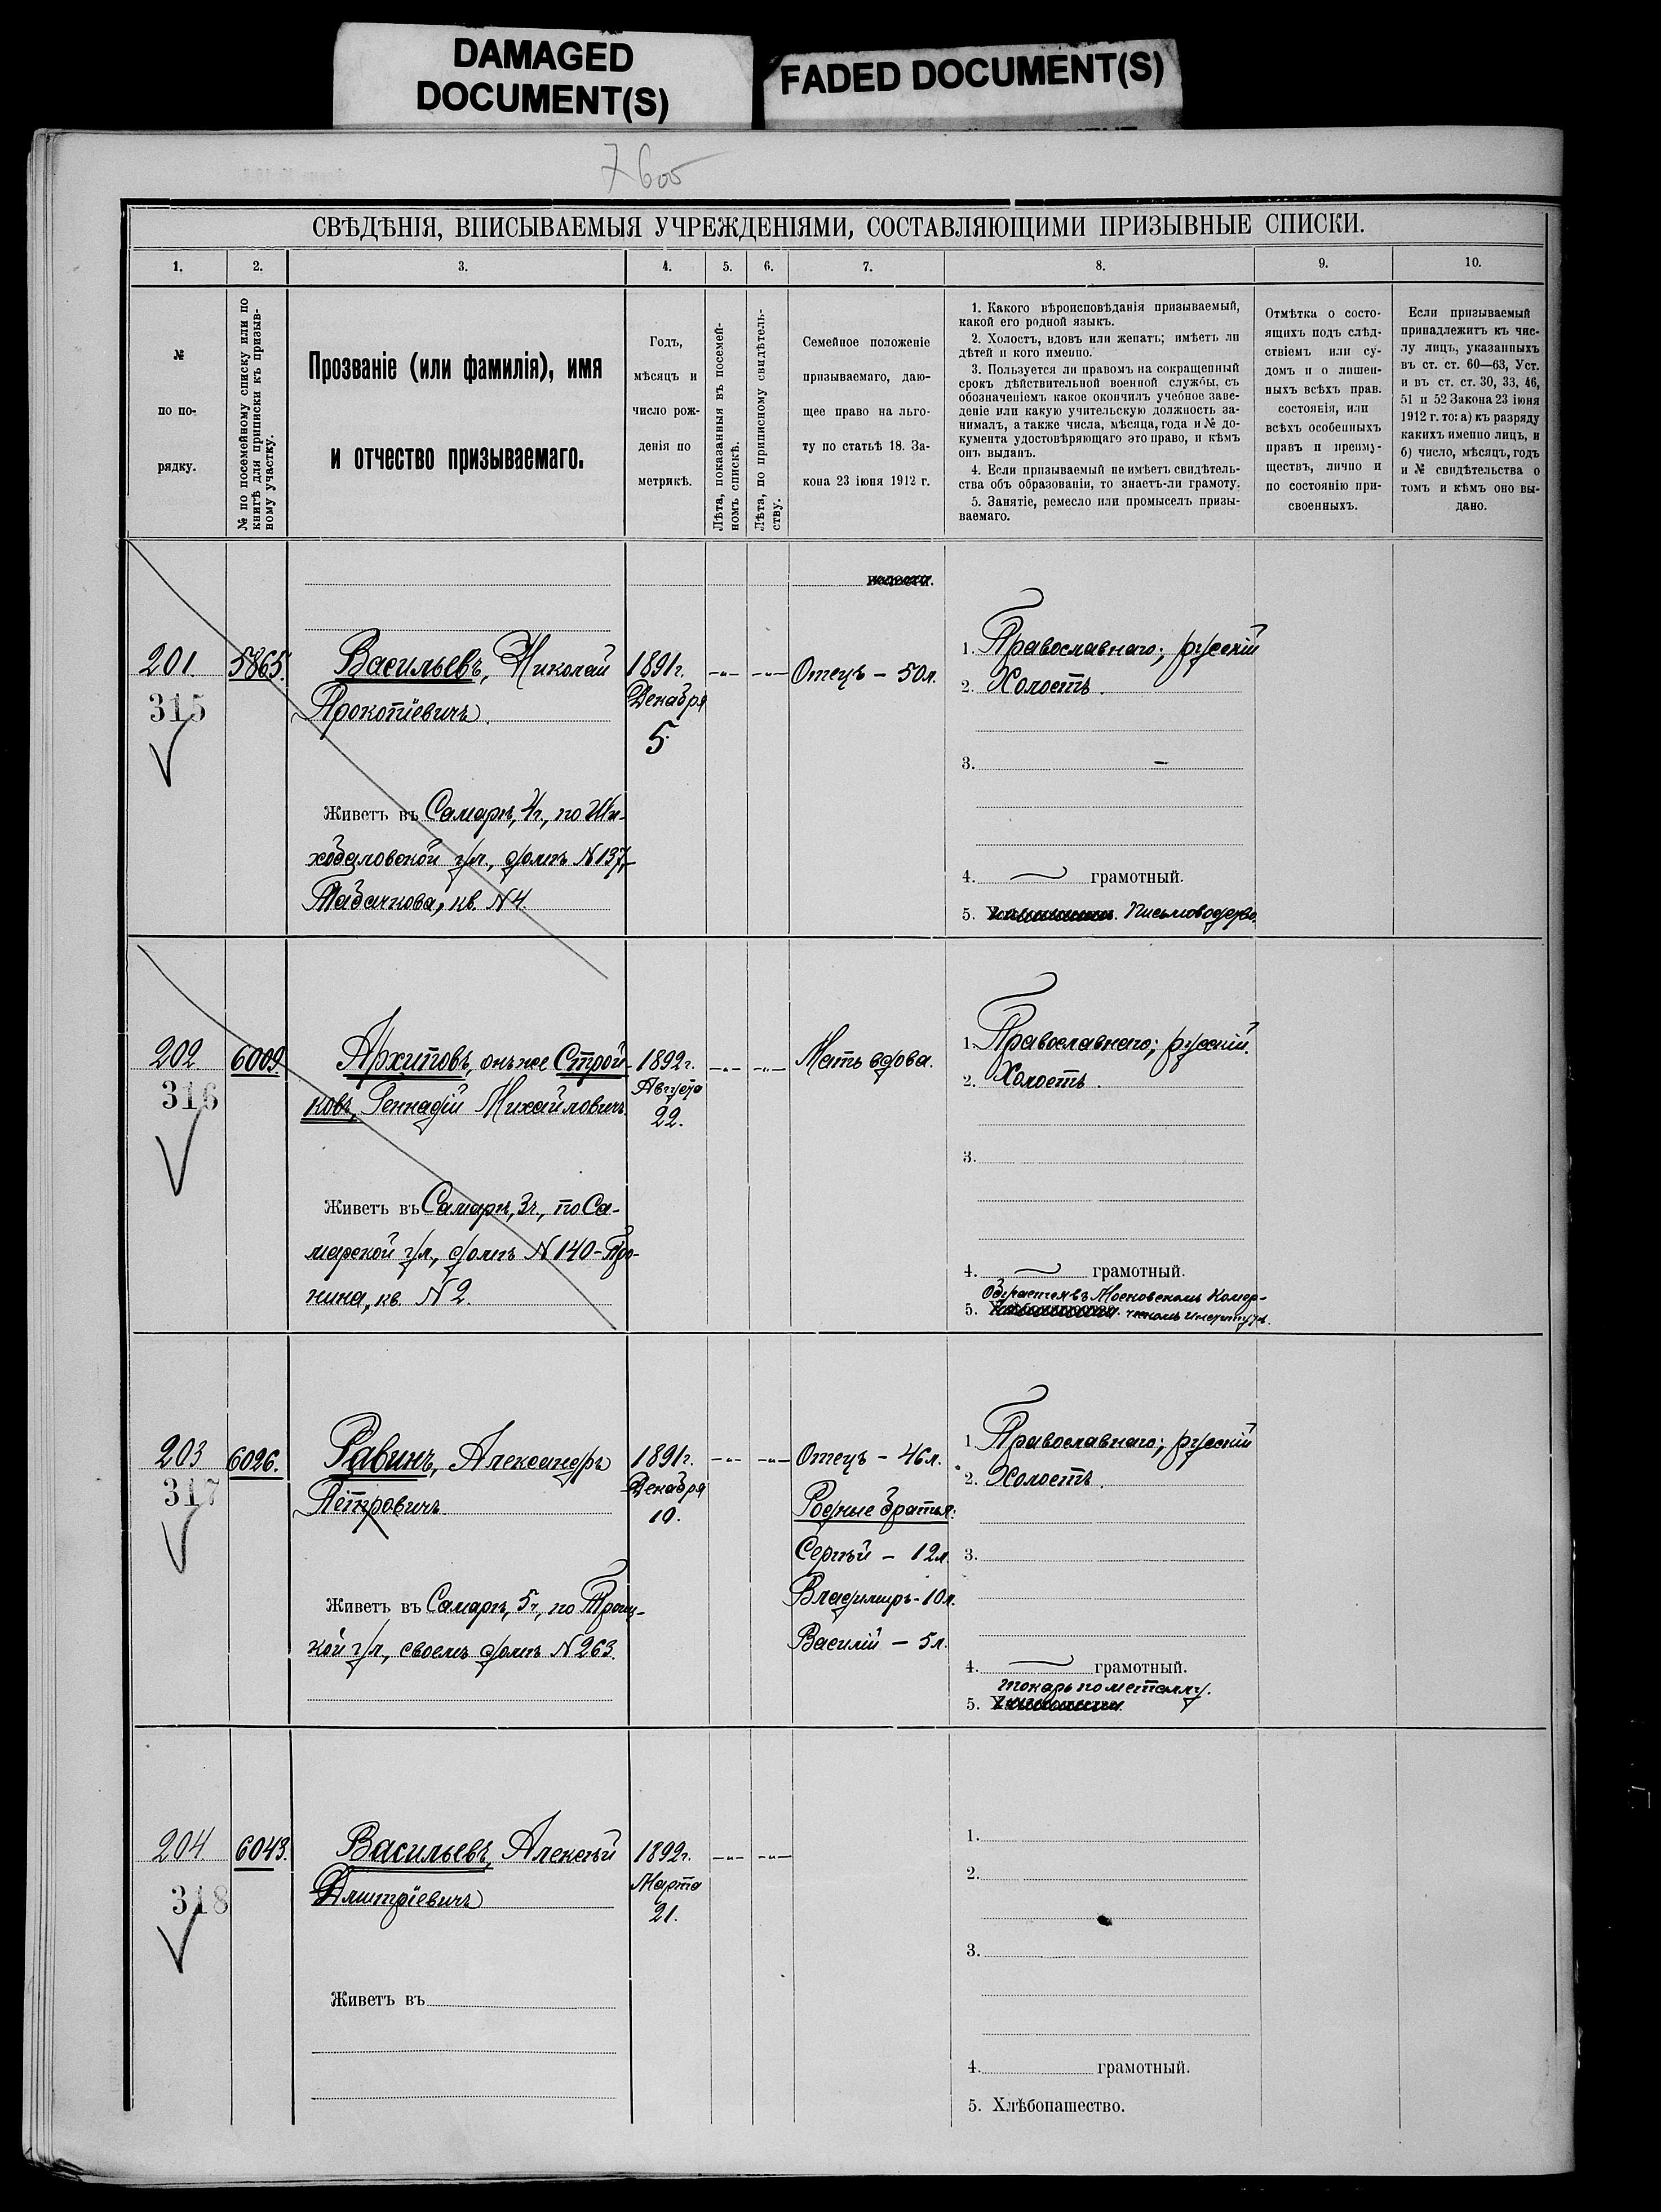 DAMAGED
DOCUMENT(S)
FADED DOCUMENT(S)
СВѢДѢНІЯ, ВПИСЫВАЕМЫЯ УЧРЕЖДЕНІЯМИ, СОСТАВЛЯЮЩИМИ ПРИЗЫВНЫЕ СПИСКИ.
1. 2. 3. 4. 5. 6. 7. 8. 9. 10.
№
по по-
рядку.
№ по посемейному списку или по
книгѣ для приписки къ призыв-
ному участку.
Прозваніе (или фамилія), имя
и отчество призываемаго.
Годъ,
мѣсяцъ и
число рож-
денія по
метрикѣ.
Лѣта, показанныя въ посемей-
номъ спискѣ.
Лѣта, по приписному свидѣтель-
ству.
Семейное положеніе
призываемаго, даю-
щее право на льго-
ту по статьѣ 18. За-
кона 23 іюня 1912 г.
1. Какого вѣроисповѣданія призываемый,
какой его родной языкъ.
2. Холостъ, вдовъ или женатъ; имѣетъ ли
дѣтей и кого именно.
3. Пользуется ли правомъ на сокращенный
срокъ дѣйствительной военной службы, съ
обозначеніемъ какое окончилъ учебное заве-
деніе или какую учительскую должность за-
нималъ, а также числа, мѣсяца, года и № до-
кумента удостовѣряющаго это право, и кѣмъ
онъ выданъ.
4. Если призываемый не имѣетъ свидѣтель-
ства объ образованіи, то знаетъ-ли грамоту.
5. Занятіе, ремесло или промыселъ призы-
ваемаго.
Отмѣтка о состо-
ящихъ подъ слѣд-
ствіемъ или су-
домъ и о лишен-
ныхъ всѣхъ прав.
состоянія, или
всѣхъ особенныхъ
правъ и преиму-
ществъ, лично и
по состоянію при-
своенныхъ.
Если призываемый
принадлежитъ къ чис-
лу лицъ, указанныхъ
въ ст. ст. 60—63, Уст.
и въ ст. ст. 30, 33, 46,
51 и 52 Закона 23 іюня
1912 г. то: а) къ разряду
какихъ именно лицъ, и
б) число, мѣсяцъ, годъ
и № свидѣтельства о
томъ и кѣмъ оно вы-
дано.
201. 5865. Васильевъ, Николай
Прокопіевичъ.
315
1891г.
Декабря
5.
Отецъ – 50л.
1. Православнаго; русскій
2. Холостъ.
3. –
Живетъ въ Самарѣ, 4ч., по Ши-
ходаловской ул., домъ N 137,
кв. N 4.
4. грамотный.
5. Письмоводство.
202 6009. Архиповъ, онъ же Строй-
ковъ, Геннадій Михайловичъ.
316
1892г.
Августа
22.
Мать вдова.
1. Православнаго; русскій.
2. Холостъ.
3.
Живетъ въ Самарѣ, 3ч., по Са-
марской ул., домъ N 140 – Про-
нина, кв. N 2.
4. грамотный.
Обучается въ Московскомъ Комер-
5. ческомъ Институтѣ.
203 6026. Равинъ, Александръ
Петровичъ.
317
1891г.
Декабря
10.
Отецъ – 46л.
Родные братья:
Сергѣй – 12л.
Владиміръ – 10л.
Василій – 5л.
1. Православнаго; русскій
2. Холостъ.
3.
Живетъ въ Самарѣ, 5ч, по Троиц-
кой ул., своемъ домѣ N 263.
4. грамотный.
токарь по металлу.
5.
204. 6043. Васильевъ, Алексѣй
Дмитріевичъ
318
1892г.
Марта
21.
1.
2.
3.
Живетъ въ
4. грамотный.
5. Хлѣбопашество.